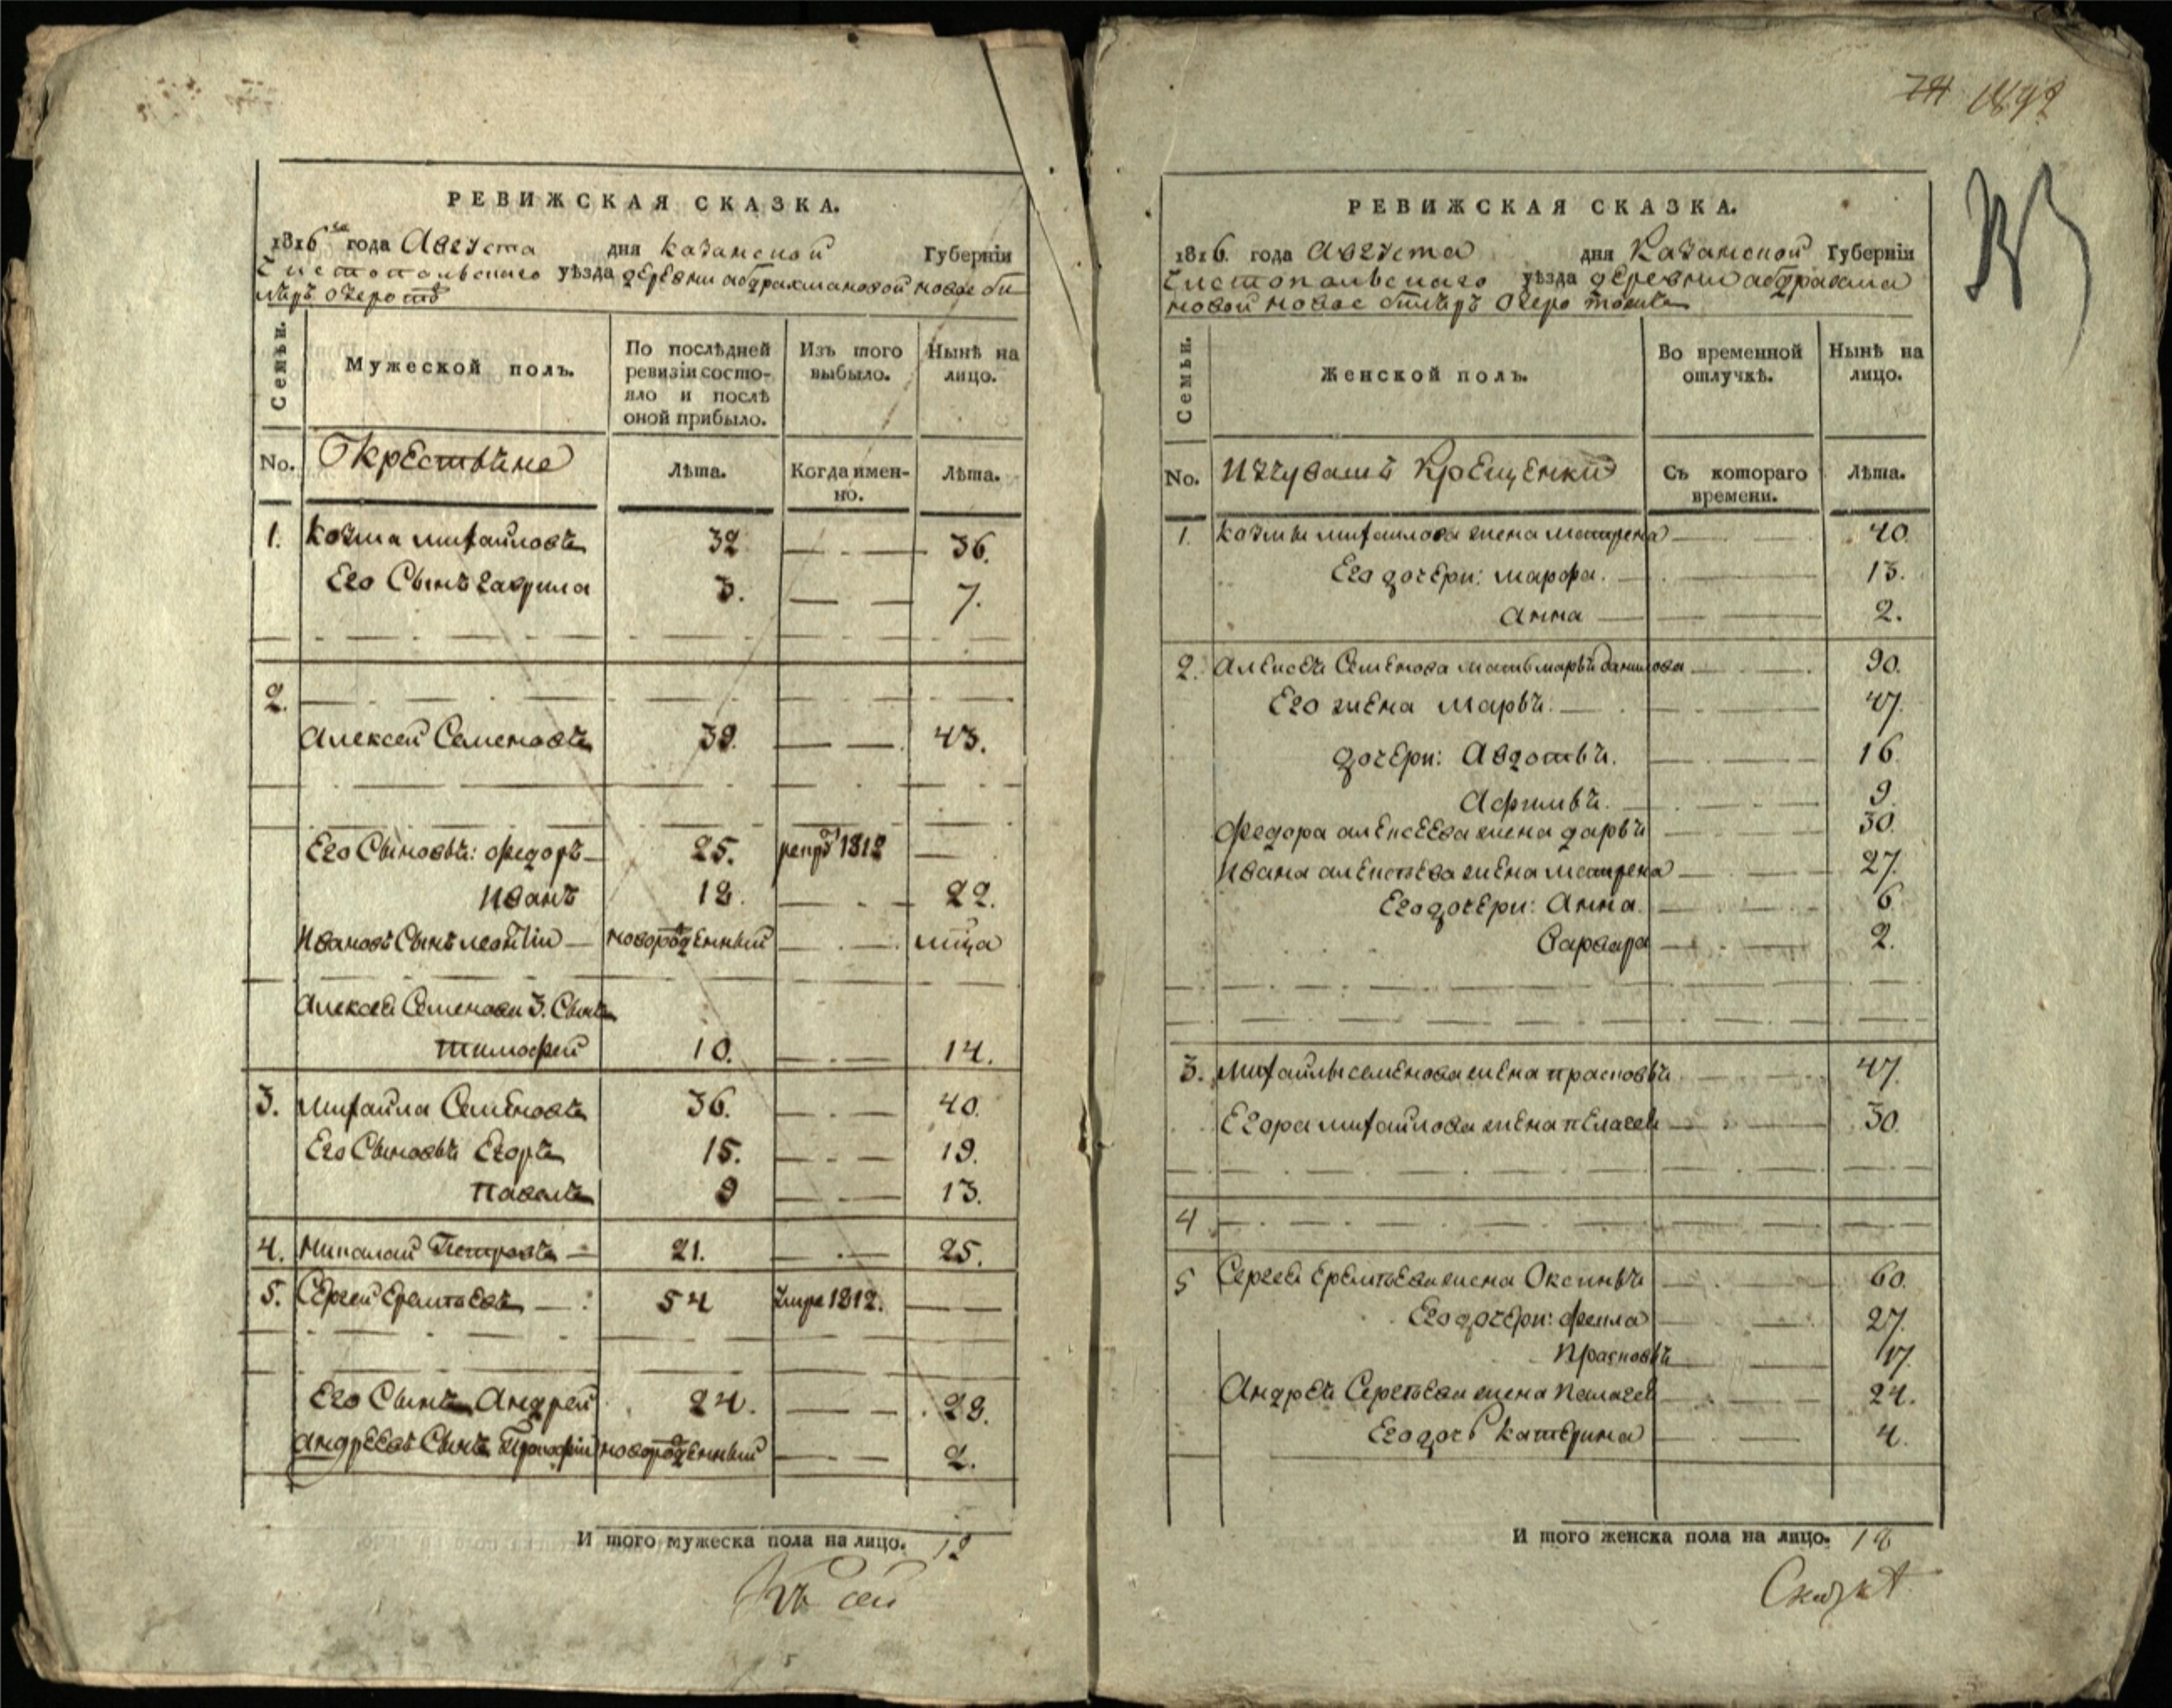 РЕВИЖСКАЯ СКАЗКА.
1816 года Августа дня казанской Губерніи
Чистопольскаго уѣзда деревни абдрахмановой новое би
ляръ озеро тѣ
Семьи.
Мужеской полъ.
По послѣдней ревизіи состояло и послѣ оной прибыло.
Изъ того выбыло.
Нынѣ на лицо.
No.
Окрестьяне
Лѣта.
Когда именно.
Лѣта.
1. Козма михаиловъ 32 36.
Его Сынъ гаврила 3. 7.
2.
Алексей Семеновъ 39. 43.
Его Сыновьѣ: федоръ 25. рекрут 1812
Иванъ 18. 22.
Ивановъ Сынъ леонтiи новорожденный
Алексея Семенова 3. Сынъ
тимофей 10. 14.
3. михаила Семеновъ 36. 40.
Его Сыновьѣ Егоръ 15. 19.
павелъ 9 13.
4. Николай Петровъ 21. 25.
5. Сергей Ермолаевъ 54 умре 1812.
Его Сынъ Андрей 24. 28.
андреевъ Сынъ новорожденный 2.
И того мужеска пола на лицо. 12
Къ сей
74
РЕВИЖСКАЯ СКАЗКА.
1816 года Августа дня Казанской Губерніи
Чистопольскаго уѣзда деревни абдрахма
новой новое биляръ озеро тожъ
Семьи.
Женской полъ.
Во временной отлучкѣ.
Нынѣ на лицо.
No.
Изчувашъ Крещенки
Съ котораго времени.
Лѣта.
1. козмы михаилова жена матрена 40.
Его дочери: марфа. 13.
Анна 2.
2. Алексея Семенова мать марья данилова 90.
Его жена марья. 47.
дочери: Авдотья. 16.
Афимья. 9.
федора алексеева жена дарья 30.
Ивана алексѣева жена матрена 27.
Его дочери: Анна. 6.
Варвара 2.
3. михаилы семенова жена прасковья 47.
Егора михаилова жена пелагея 30.
4
5 Сергея жена Оксинья 60.
Его дочери: фекла 27.
Прасковья 17.
Андрея Сергѣева жена пелагея 24.
Его дочь катерина 4.
И того женска пола на лицо. 18
Сказкѣ